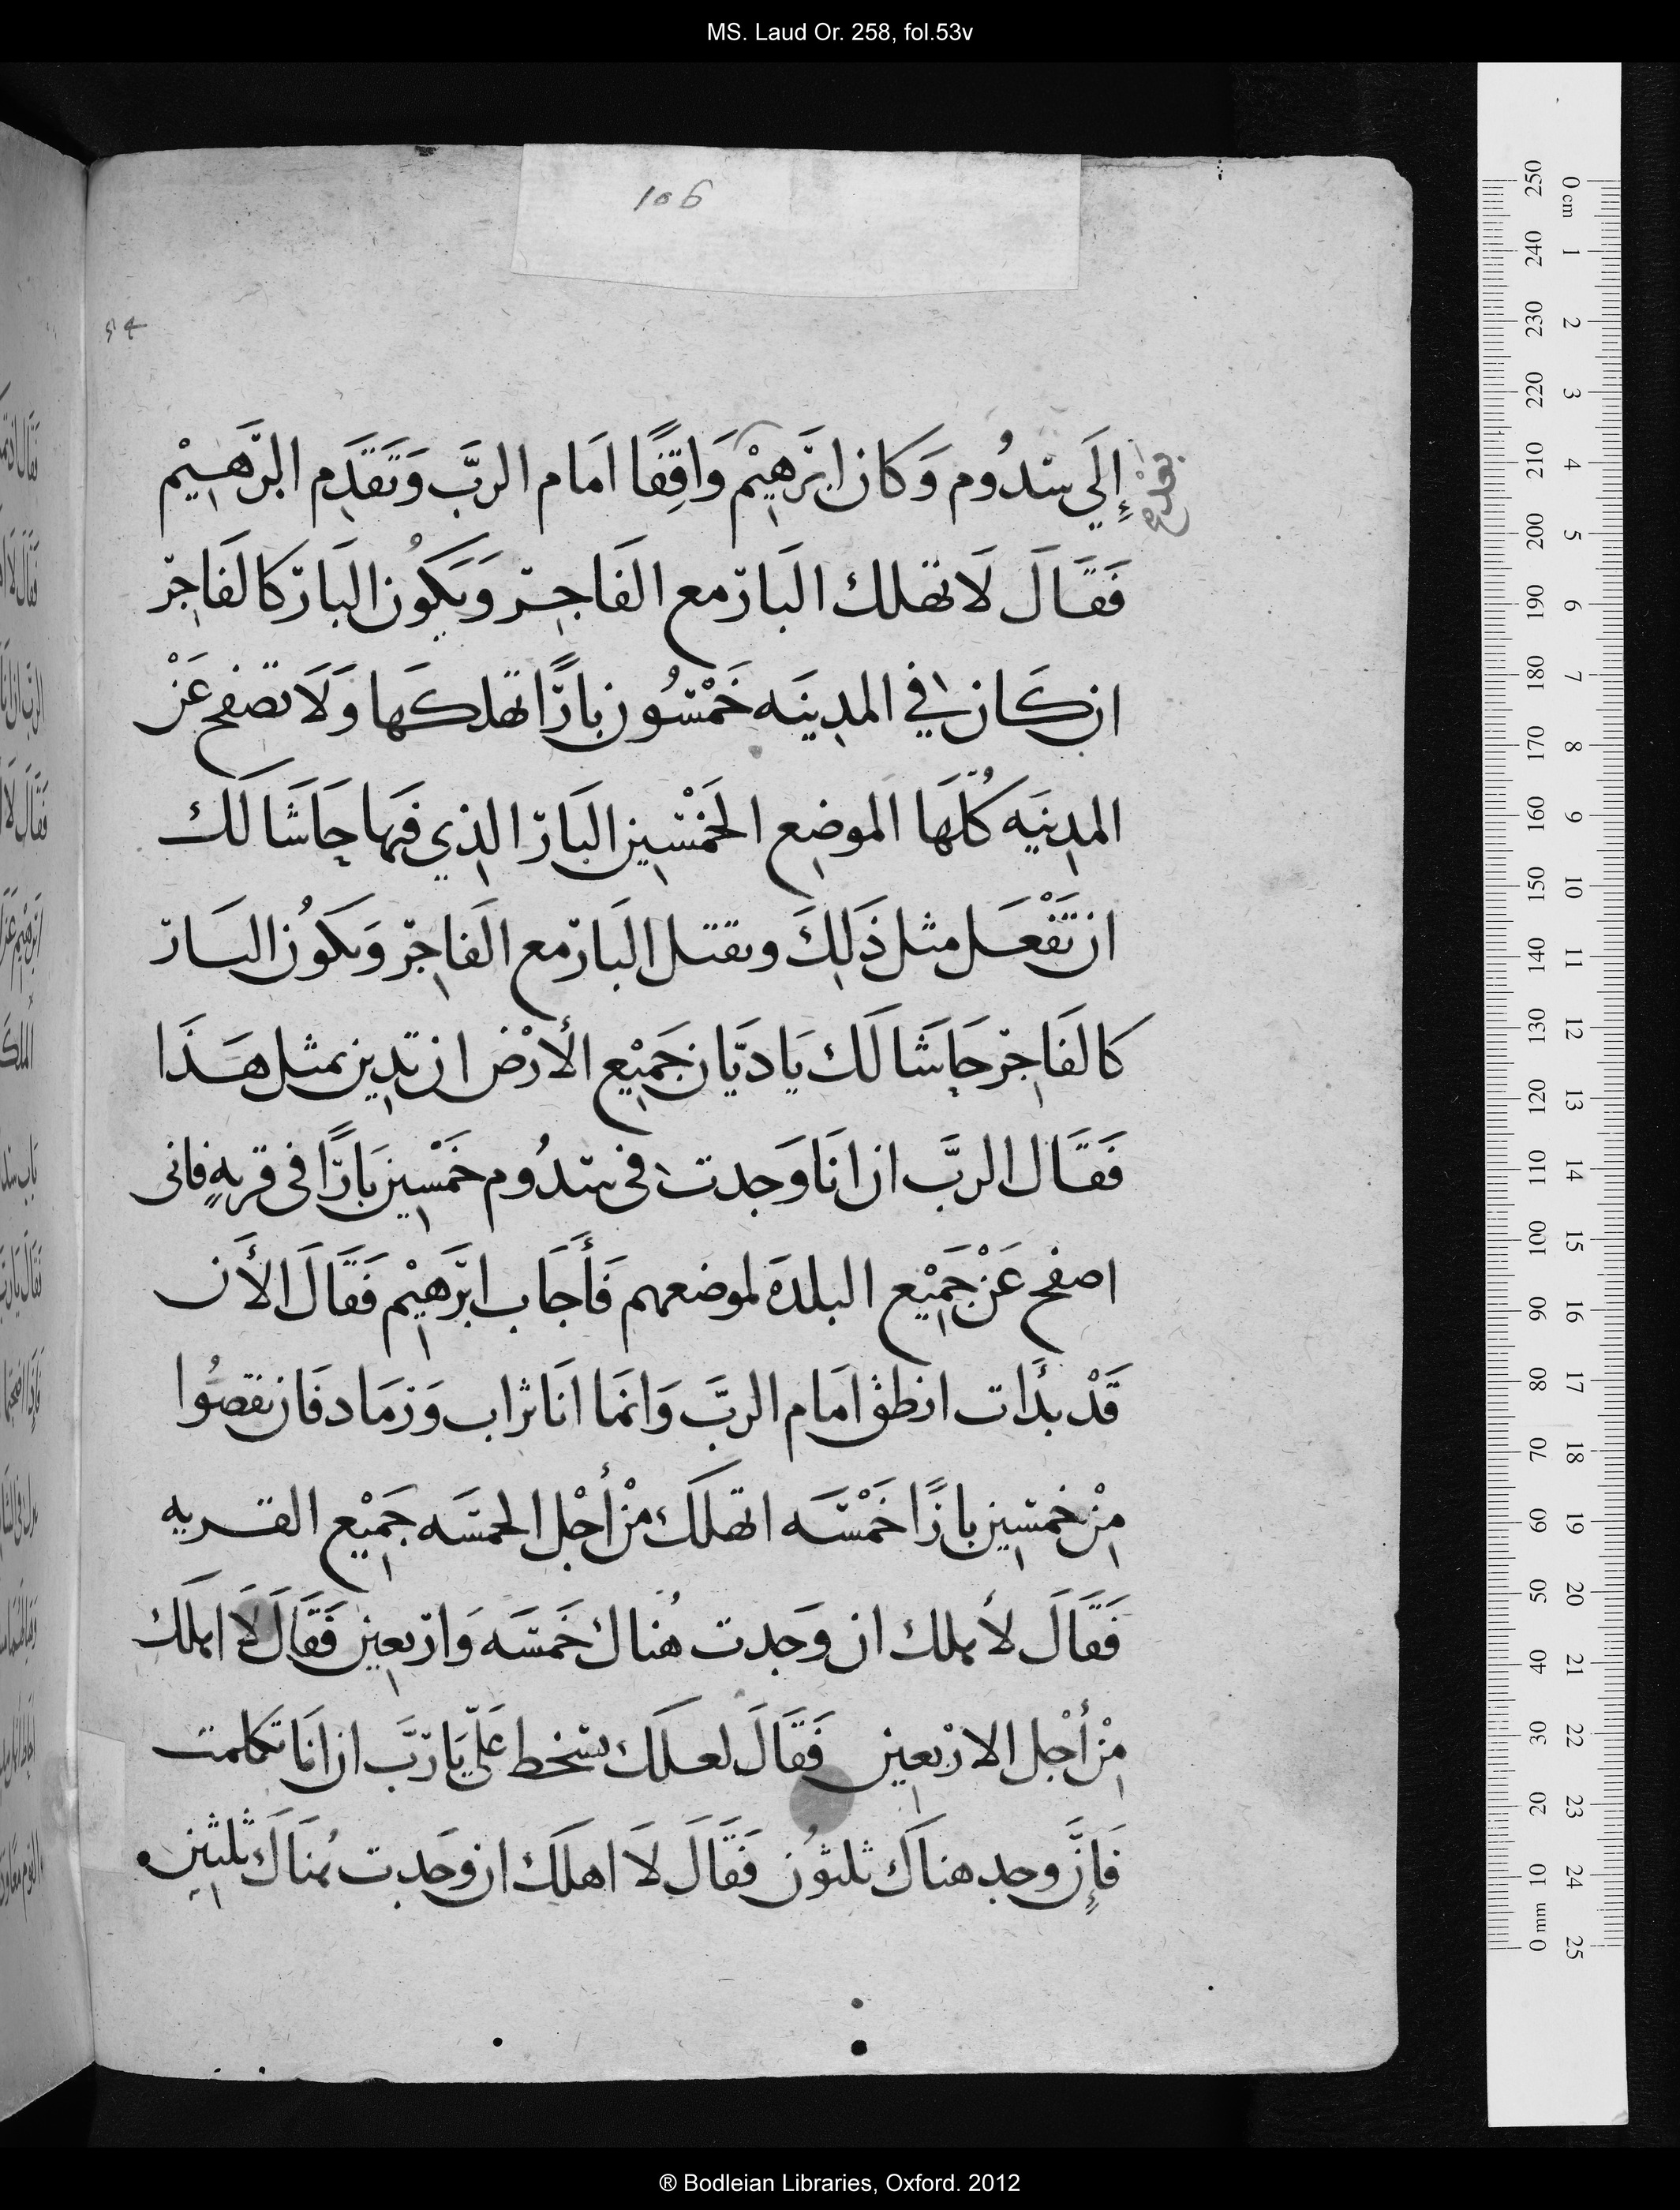 MS. Laud Or. 258, fol.53v
106
54
إِلَي سَدُوم وَكان ابرَهِيْم وَاقِفًا امَام الربَّ وَتَقَدَم ابرَهِيْم
فَقَالَ لَا تهلك البَار مع الفَاجِر وَيَكُون البَار كالفَاجِر
ان كَان في المدينَه خَمْسُون بارًا تهلكَها وَلَا تصفح عَن
المدِينَه كُلّهَا الموضِع الخَمْسِين البَار الذِي فيها حَاشَا لَك
ان تَفْعَل مثل ذَلِكَ وتقتل البَار مع الفَاجِر وَيكُون البَار
كالفَاجِر حَاشَا لَك يَا دَيَان جَمِيْع الأرْض ان تدِين بمثل هَذَا
فَقَال الربَّ ان انَا وَجدت في سَدُوم خَمْسِين بَارًا في قريهٍ فانى
اصفح عَنْ جَمِيْع البلدَه لموضعهم فَأَجَاب ابرَهِيْم فَقَالَ الأَن
قَدْ بدَأت انطق امَام الربَّ وَانمَا انَا تراب وَرمَاد فَان نقصُوا
مِنْ خمسِين بارًا خَمْسَه اتهلكَ مِنْ أجْل الخمسَه جَمِيْع القريه
فَقَالَ لأ يهلك ان وَجدت هُناك خَمسَه وَاربعِين فَقَالَ لَا اهلَك
مِنْ أجْل الاربعِين فَقَالَ لعلكَ تسخط عَلَيّ يَا رَبَّ ان انَا تكلمت
فَإِنَّ وجد هناكَ ثلثوُن فَقَالَ لَا اهلَك ان وَجَدت هُنَاكَ ثلثِين
0 cm 1 2 3 4 5 6 7 8 9 10 11 12 13 14 15 16 17 18 19 20 21 22 23 24 25
250 240 230 220 210 200 190 180 170 160 150 140 130 120 110 100 90 80 70 60 50 40 30 20 10 0 mm
® Bodleian Libraries, Oxford. 2012